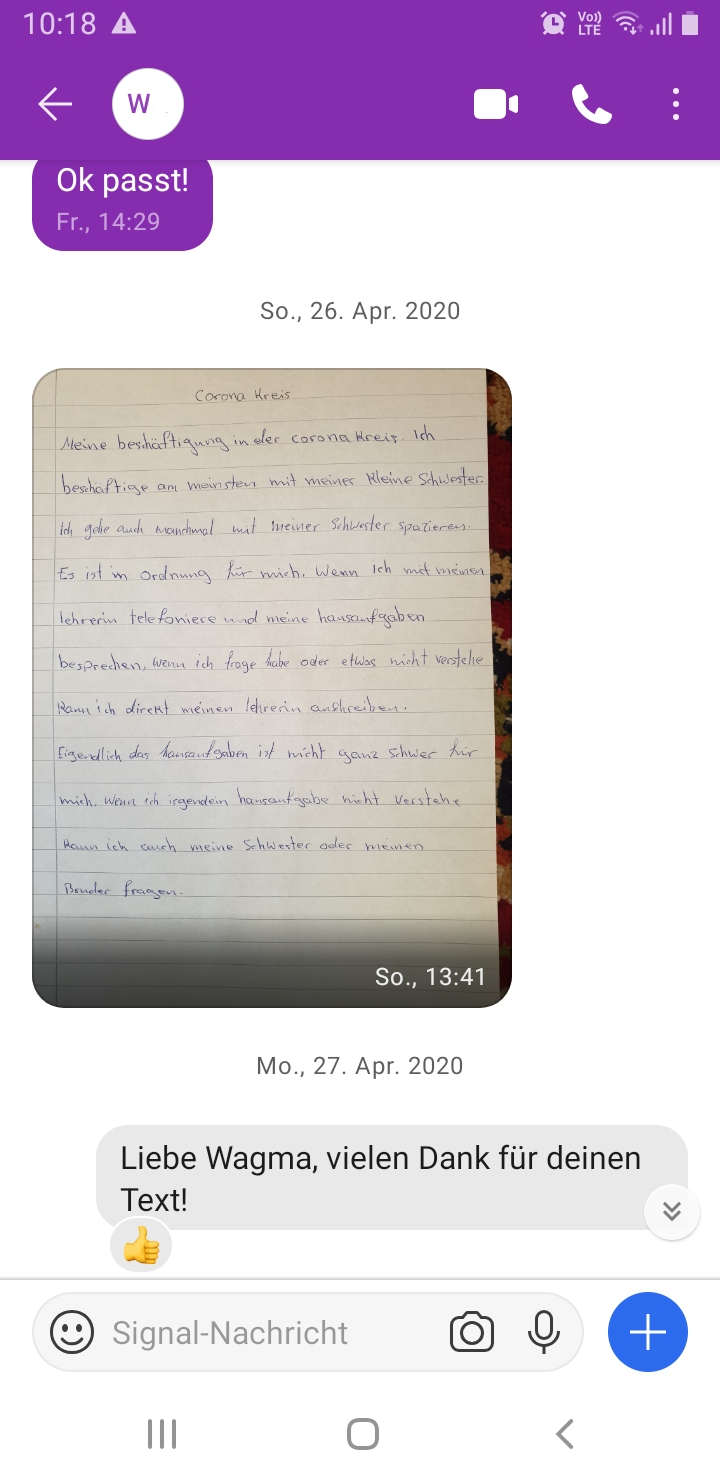 10:18
Vo))
LTE
W
Ok passt!
Fr., 14:29
So., 26. Apr. 2020
Corona Kreis
Meine beschäftigung in der corona Kreis. Ich
beschäftige am meinsten mit meiner Kleine Schwester.
ich gehe auch manchmal mit meiner Schwester spazieren.
Es ist in Ordnung für mich. Wenn ich mit meinen
lehrerin telefoniere und meine hausaufgaben
besprechen, wenn ich frage habe oder etwas nicht verstehe
Kann ich direkt meinen lehrerin anschreiben.
Eigendlich das hausaufgaben ist nicht ganz schwer für
mich. Wenn ich irgendein hausaufgabe nicht verstehe
Kann ich auch meine Schwester oder meinen
Bruder fragen.
So., 13:41
Mo., 27. Apr. 2020
Liebe Wagma, vielen Dank für deinen
Text!
Signal-Nachricht